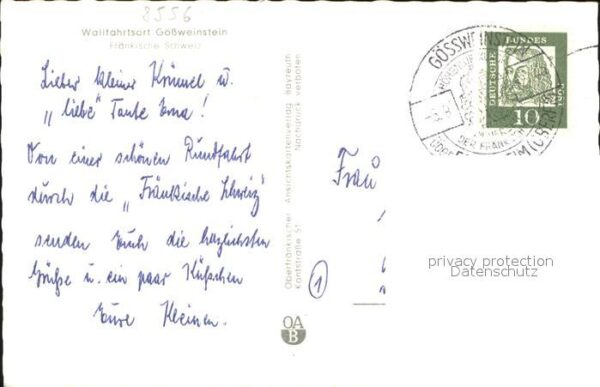 8556
Wallfahrtsort Gößweinstein
Fränkische Schweiz
Lieber kleiner Krümel u.
"liebe" Tante Erna!
Von einer schönen Rundfahrt
durch die "Fränkische Schweiz"
senden Euch die herzlichsten
Grüße u. ein paar Küßchen
Eure Kleinen.
Oberfränkischer Ansichtskartenverlag Bayreuth
Kantstraße 51 Nachdruck verboten
OA
B
Frau
1
GÖSSWEINSTEIN
DER FRÄNK
DEUTSCHE BUNDESPOST
10
privacy protection
Datenschutz